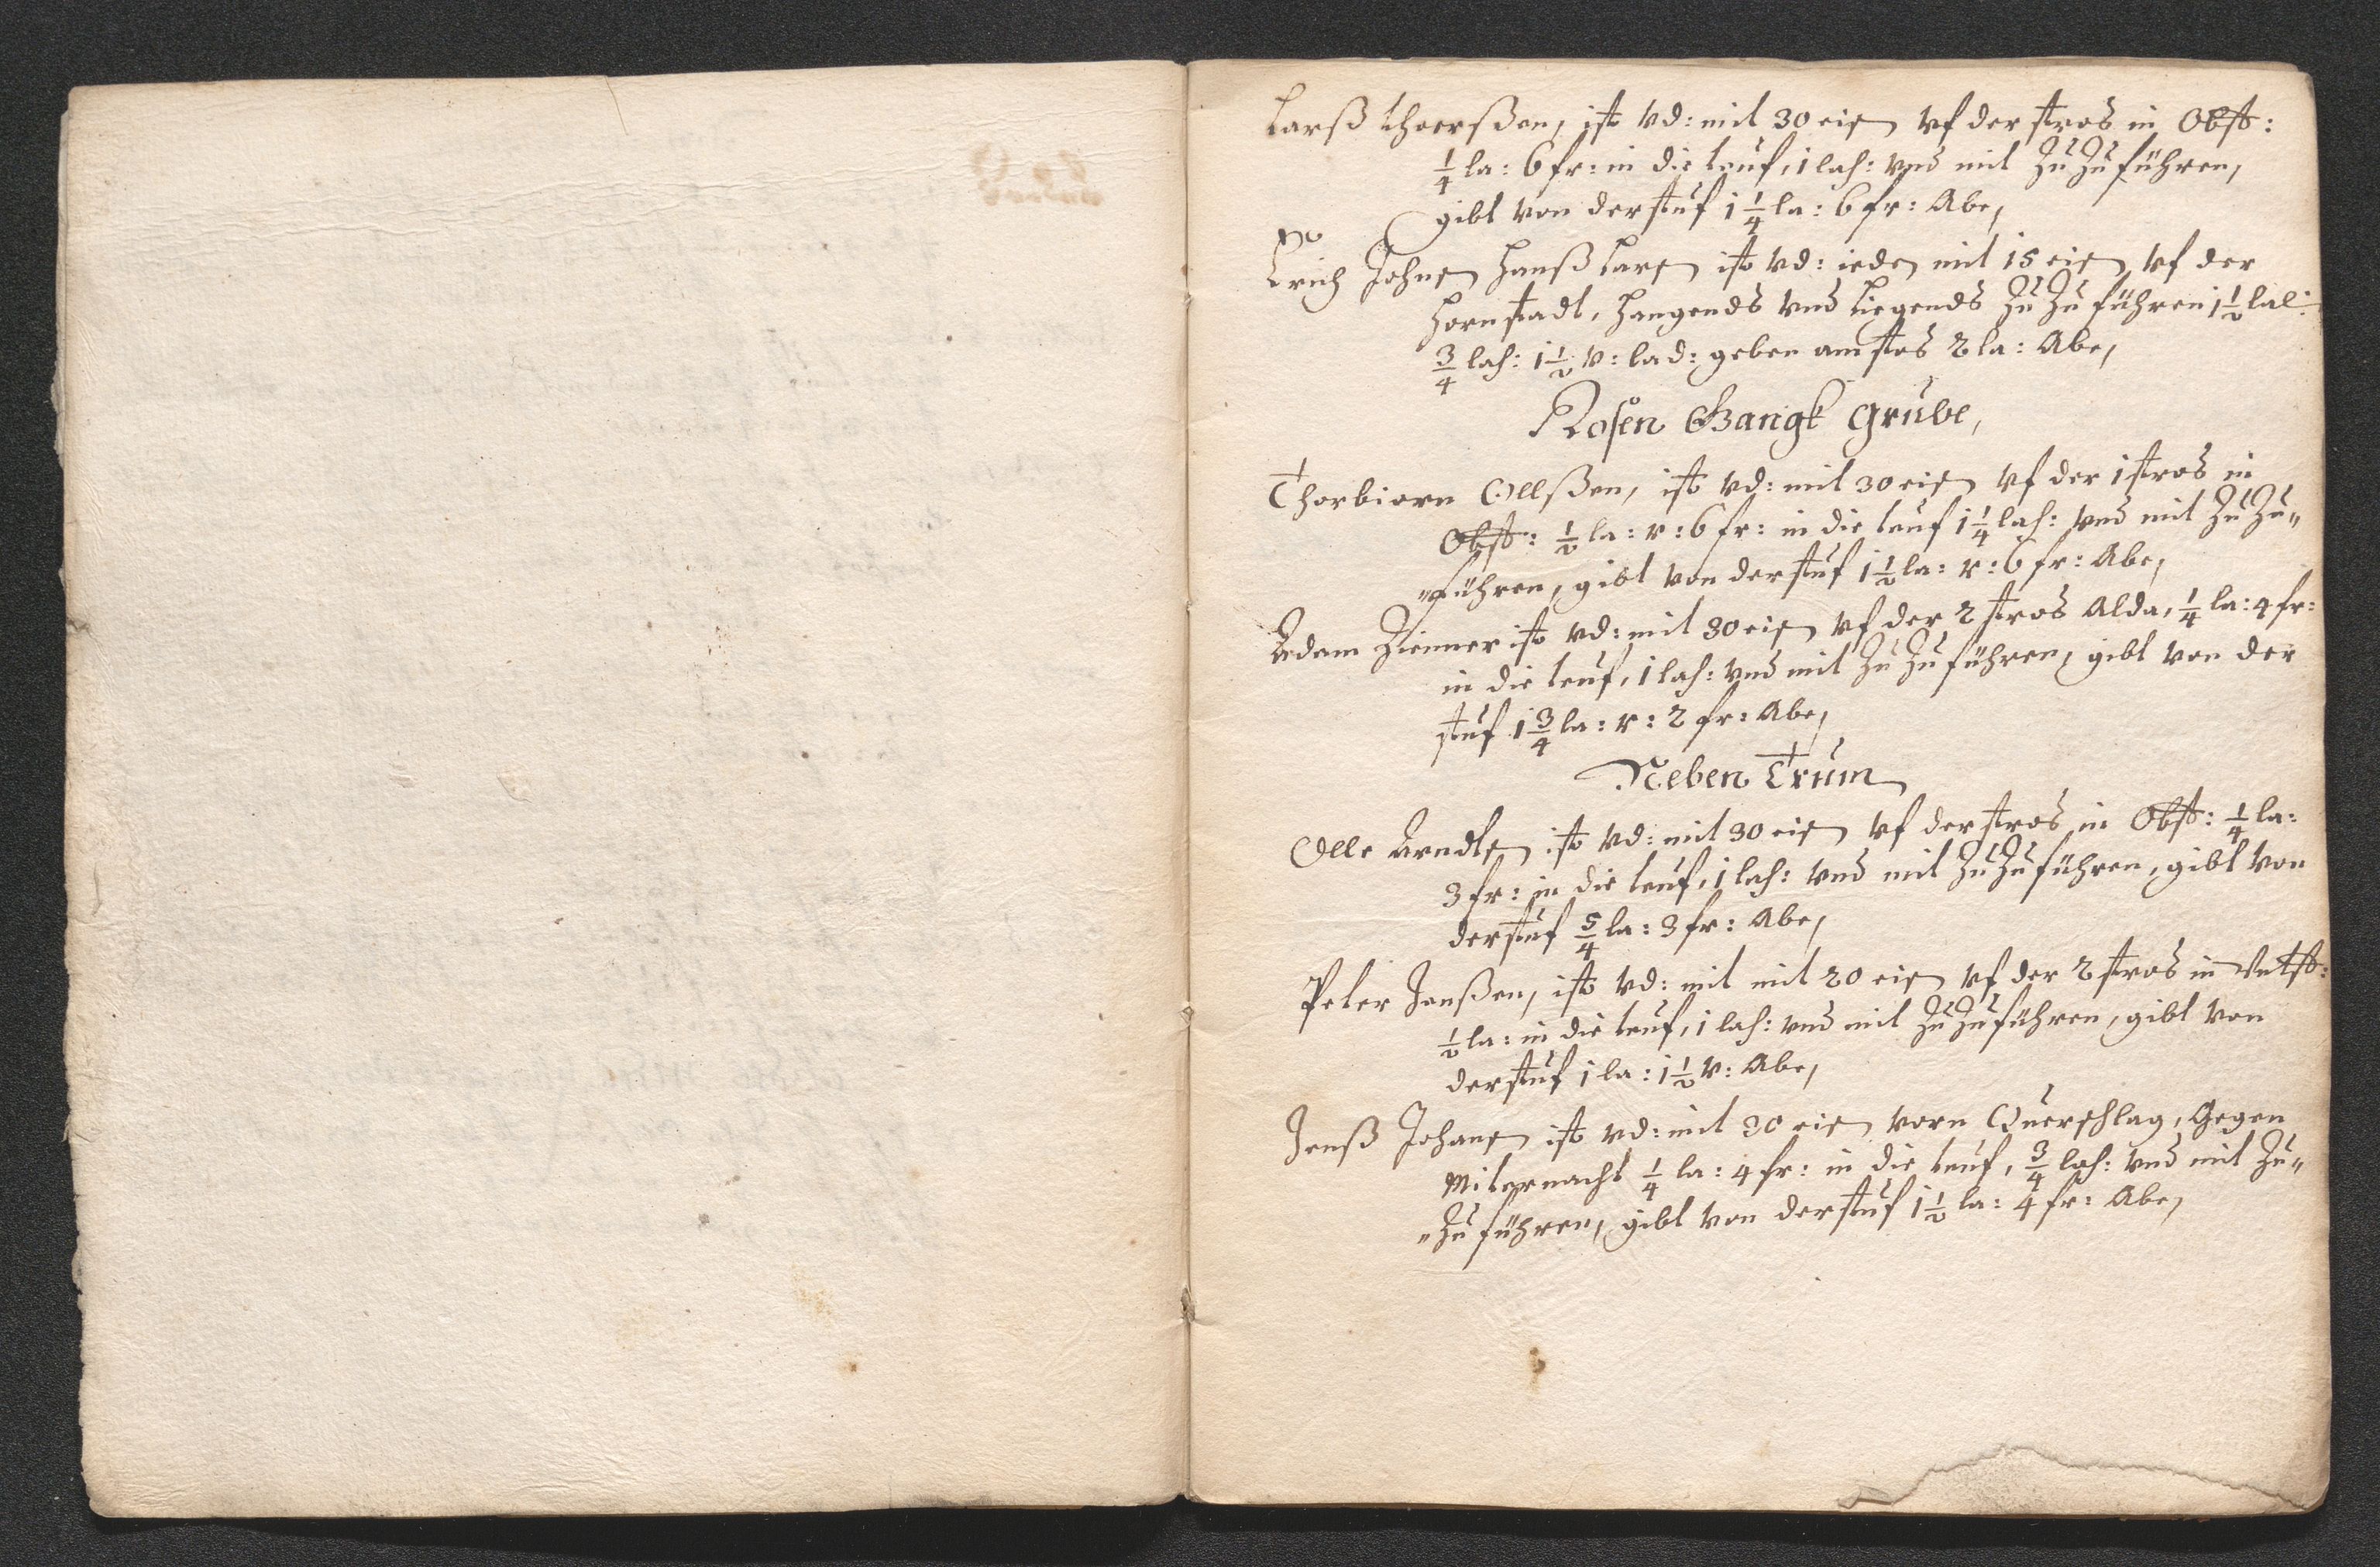 Larß thorßen, ist vd: mit 30 eisn vf der stros in Obst:
1/4 la: 6 fr: in die teuf, 1 lach: vnd mit Zu Zu führen,
gibt von der stuf 1 1/4 la: 6 fr: Abe,
No
Erich Johnsn Hanß Larsn ist vd: jeder mit 15 eisn vf der
Hornstadt, Hangends vnd Liegends Zu Zu führen 1 1/2 lal:
3/4 lach: 1 1/2 v: lad: geben am stos 2 la: Abe,
Rosen Gangk Grube,
Thorbiorn Ollßen, ist vd: mit 30 eisn vf der 1 stros in
Obst: 1/2 la: v: 6 fr: in die teuf 1 1/4 lach: vnd mit Zu Zu„
„führen, gibt von der stuf 1 1/2 la: v: 6 fr: Abe,
Adam Ziemer ist vd: mit 30 eisn vf der 2 stros Alda, 1/4 la: 4 fr:
in die teuf, 1 lach: vnd mit Zu Zu führen, gibt von der
stuf 1 3/4 la: v: 2 fr: Abe,
Neben Trum
Olle Arndtsn ist vd: mit 30 eisn vf der stros in Obst: 1/4 la:
3 fr: in die teuf, 1 lach: vnd mit Zu Zu führen, gibt von
der stuf 5/4 la: 3 fr: Abe,
Peter Jenßen, ist vd: mit mit 20 eisn vf der 2 stros in Vntst:
1/2 la: in die teuf, 1 lach: vnd mit Zu Zu führen, gibt von
der stuf 1 la: 1 1/2 v: Abe,
Jenß Johansn ist vd: mit 30 eisn vorn Querschlag, Gegen
Miternacht 1/4 la: 4 fr: in die teuf, 3/4 lach: vnd mit Zu„
„Zu führen, gibt von der stuf 1 1/2 la: 4 fr: Abe,